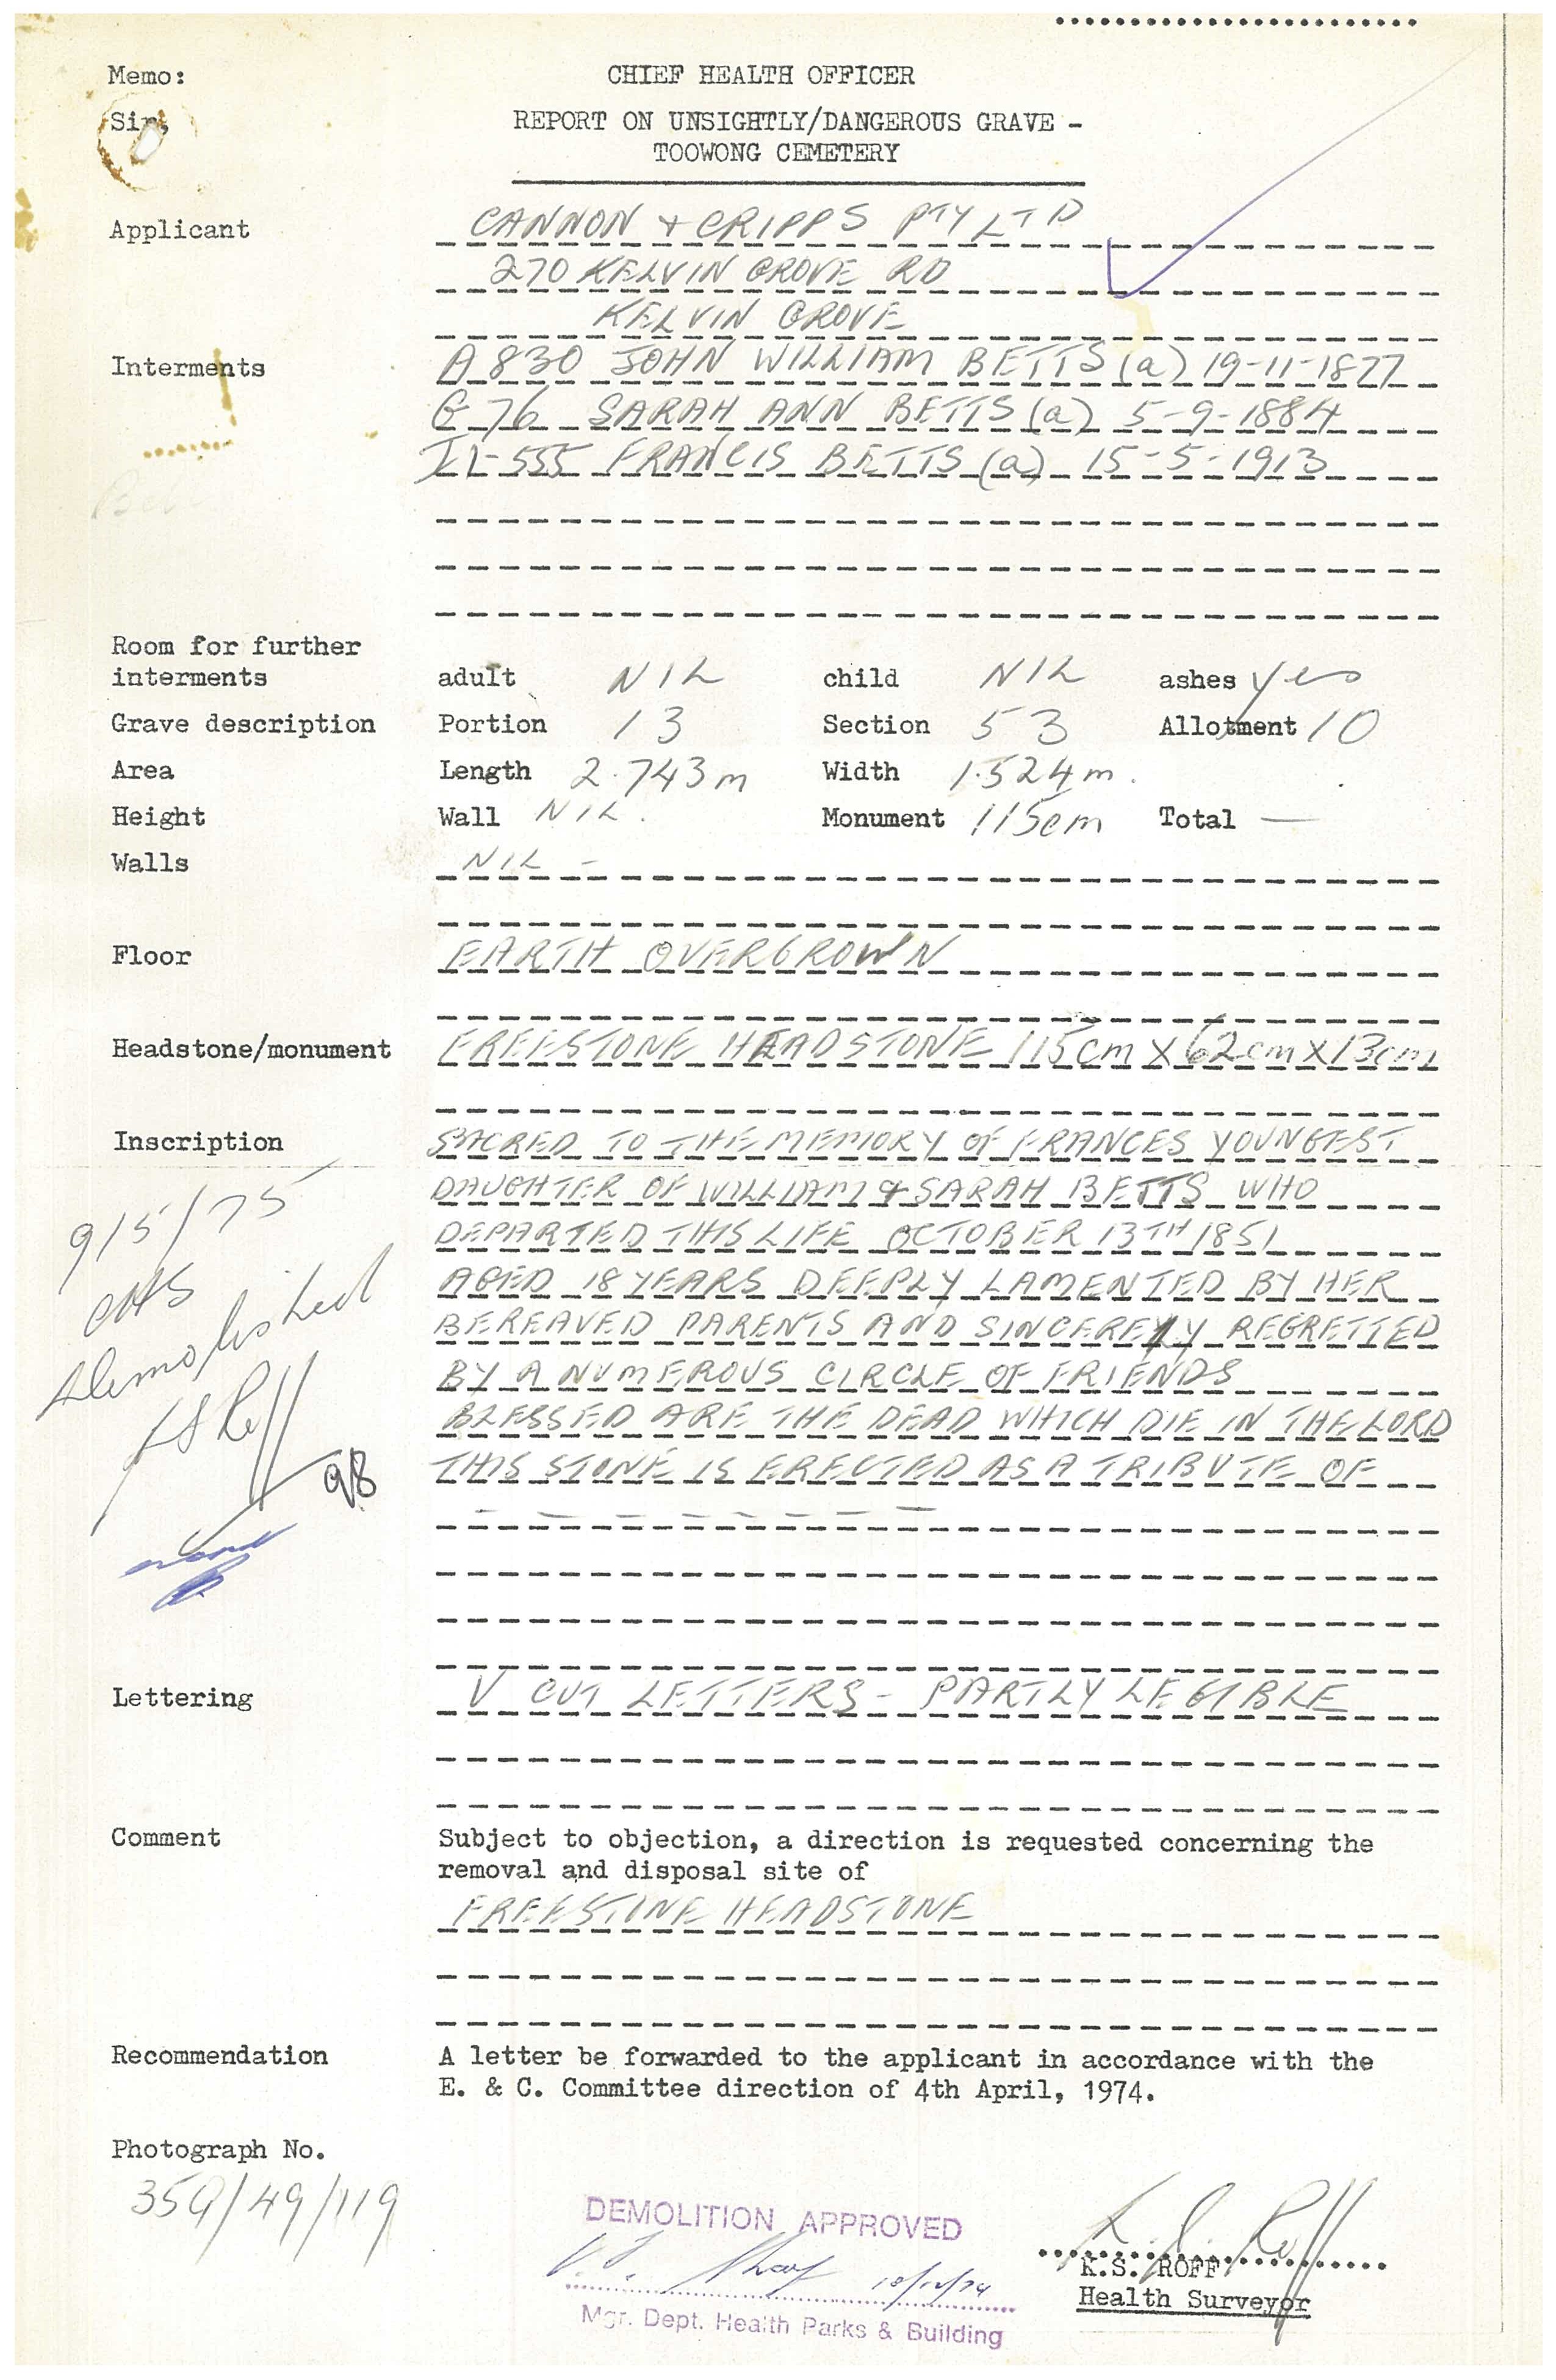 Memo: CHIEF HEALTH OFFICER
Sir, REPORT ON UNSIGHTLY/DANGEROUS GRAVE -
TOOWONG CEMETERY
Applicant CANNON + CRIPPS PTY LTD
270 KELVIN GROVE RD
KELVIN GROVE
Interments A 830 JOHN WILLIAM BETTS (a) 19-11-1877
G 76 SARAH ANN BETTS (a) 5-9-1884
555 FRANCIS BETTS (a) 15-5-1913
Room for further
interments adult NIL child NIL ashes yes
Grave description Portion 13 Section 53 Allotment 10
Area Length 2.743m Width 1.524m.
Height Wall NIL. Monument 115cm Total —
Walls NIL -
Floor EARTH OVERGROWN
Headstone/monument FREESTONE HEADSTONE 115cm X 62cm X 13cm
Inscription SACRED TO THE MEMORY OF FRANCES YOUNGEST
DAUGHTER OF WILLIAM & SARAH BETTS WHO
DEPARTED THIS LIFE OCTOBER 13TH 1851
AGED 18 YEARS DEEPLY LAMENTED BY HER
BEREAVED PARENTS AND SINCERELY REGRETTED
BY A NUMEROUS CIRCLE OF FRIENDS
BLESSED ARE THE DEAD WHICH DIE IN THE LORD
THIS STONE IS ERECTED AS A TRIBUTE OF
9/5/75
CHS
Demolished
KS Roff
Lettering V CUT LETTERS - PARTLY LEGIBLE
Comment Subject to objection, a direction is requested concerning the
removal and disposal site of
FREESTONE HEADSTONE
Recommendation A letter be forwarded to the applicant in accordance with the
E. & C. Committee direction of 4th April, 1974.
Photograph No.
359/49/119
DEMOLITION APPROVED
K.S. Roff
K.S. ROFF
Health Surveyor
Mgr. Dept. Health Parks & Building